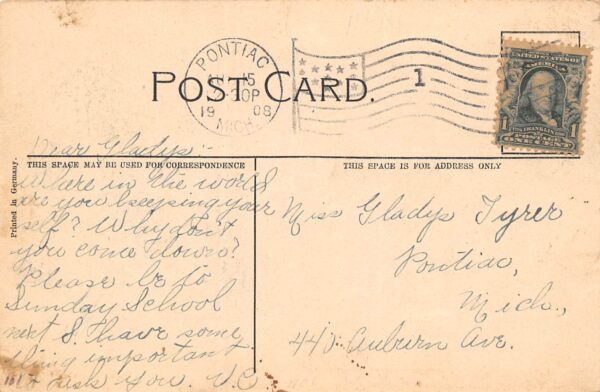 PONTIAC
15
30P
19 08
MICH.
1
UNITED STATES OF
AMERICA
1 1
FRANKLIN
POSTAGE
ONE CENT
POST CARD.
Dear Gladys:-
THIS SPACE MAY BE USED FOR CORRESPONDENCE
THIS SPACE IS FOR ADDRESS ONLY
Printed in Germany.
Where in the world
are you keeping your
self? Why don't
you come down?
Please be to
Sunday School
next S. I have some
thing important
to ask you. V.C.
Miss Gladys Tyrer
Pontiac,
Mich.,
Auburn Ave.